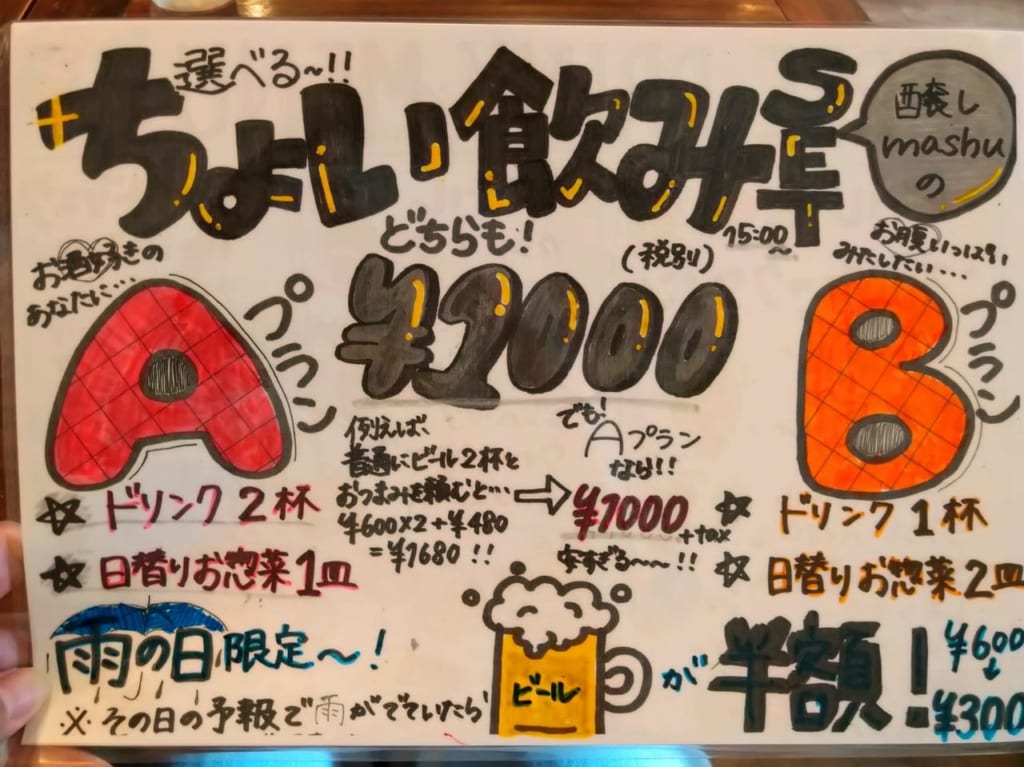 選べる～!!
ちょい飲みSET
醸し
mashu
の
15:00～
どちらも!
(税別)
¥1000
お酒好きの
あなたに…
Aプラン
☆ ドリンク2杯
☆ 日替りお惣菜1皿
例えば、
普通にビール2杯と
おつまみを頼むと…
¥600×2+¥480
=¥1680!!
でも!
Aプラン
なら!!
¥1000+tax
安すぎる～～!!
お腹いっぱい
みたしたい…
Bプラン
☆ ドリンク1杯
☆ 日替りお惣菜2皿
雨の日限定～!
※その日の予報で雨がでていたら
ビール
が半額!
¥600
↓
¥300